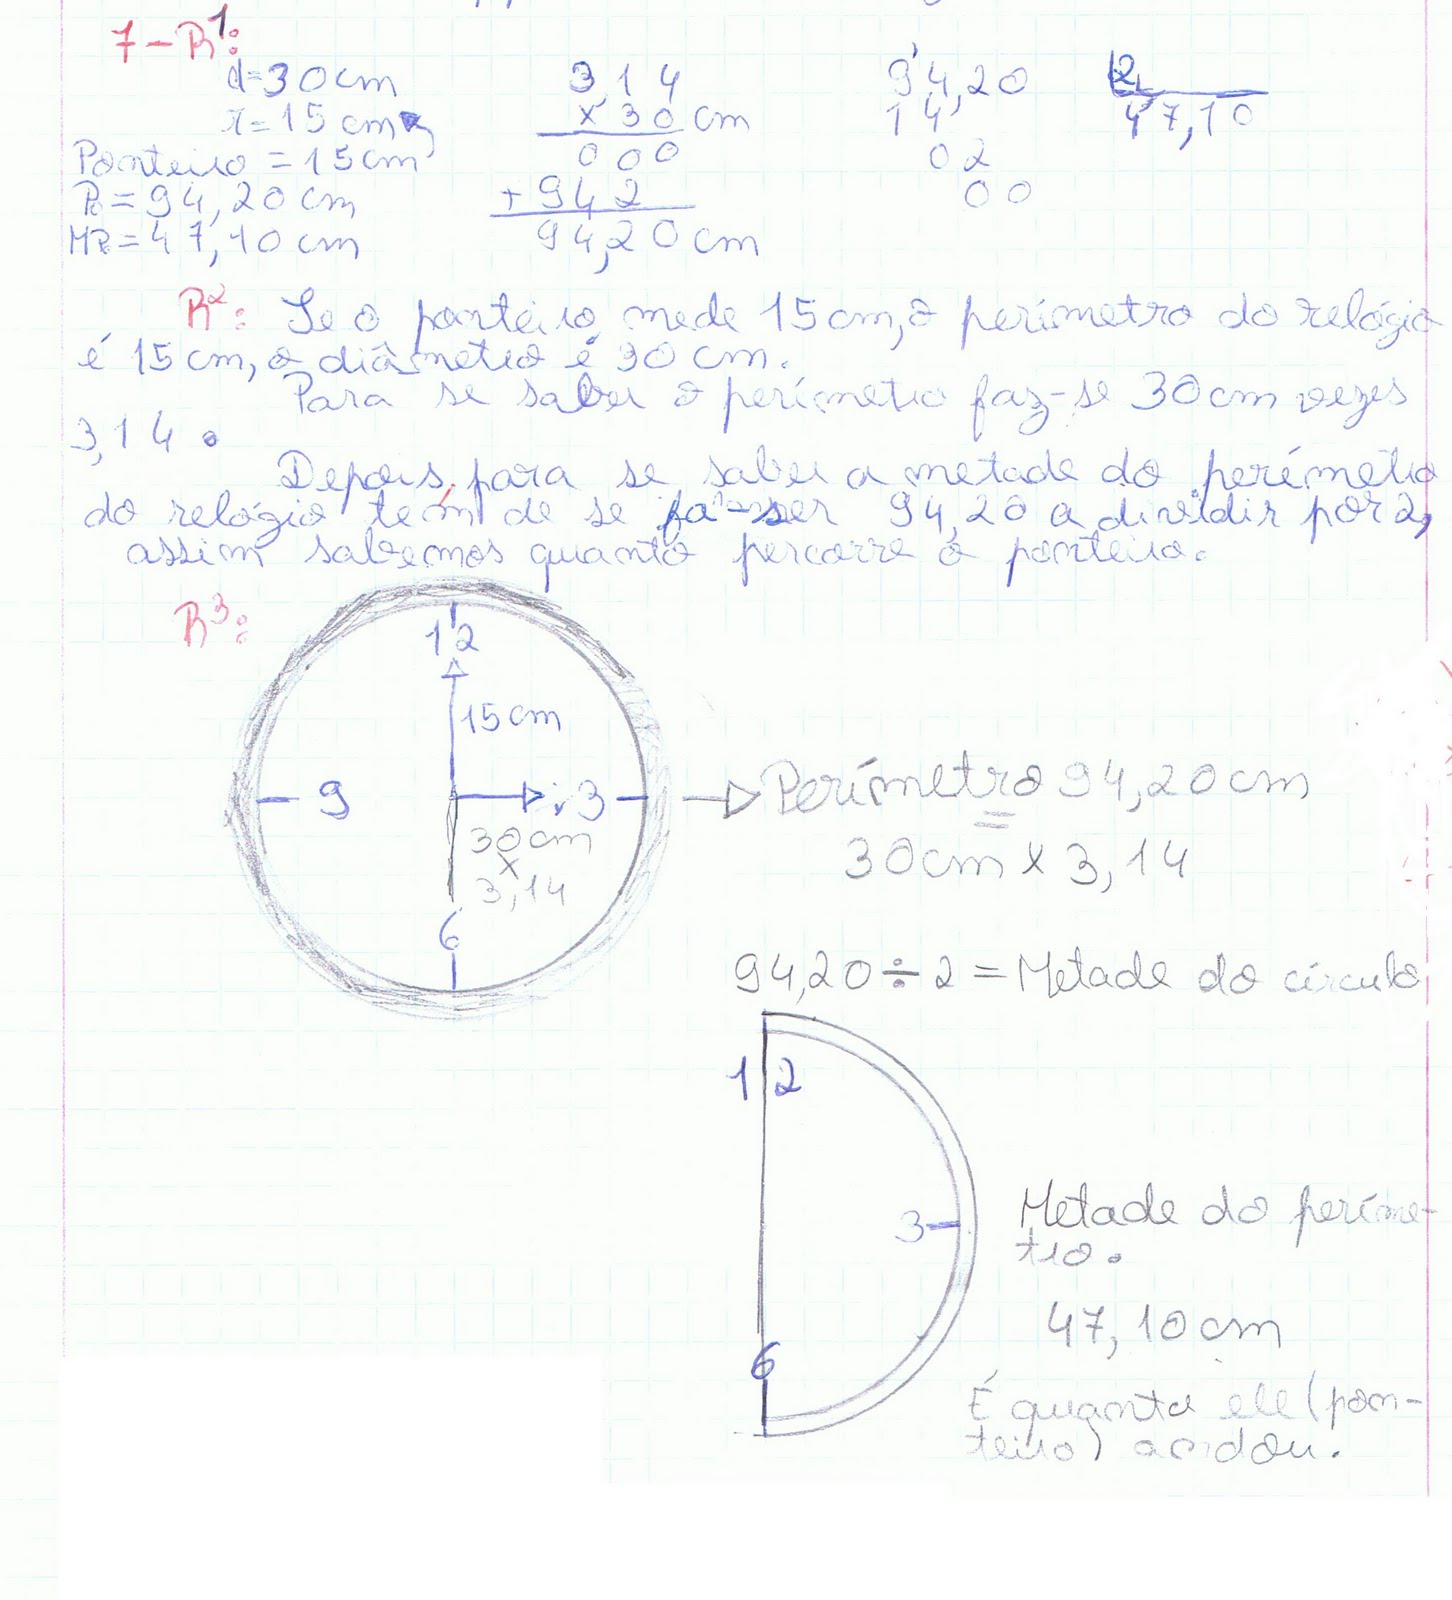 7-R1:
d=30cm
r=15cm
Ponteiro=15cm
P=94,20cm
MP=47,10cm
314
x30cm
000
+942
94,20cm
94,20 2
14 47,10
02
00
R2: Se o ponteiro mede 15cm, o perímetro do relógio
é 15cm, o diâmetro é 30cm.
Para se saber o perímetro faz-se 30cm vezes
3,14.
Depois para se saber a metade do perímetro
do relógio tem de se fa-ser 94,20 a dividir por 2,
assim sabemos quanto percorre o ponteiro.
R3:
12
15cm
9
3
30cm
x
3,14
6
Perímetro 94,20cm
=
30cm x 3,14
94,20÷2=Metade do círculo
12
3
6
Metade do períme-
tro.
47,10cm
É quanto ele (pon-
teiro) andou.